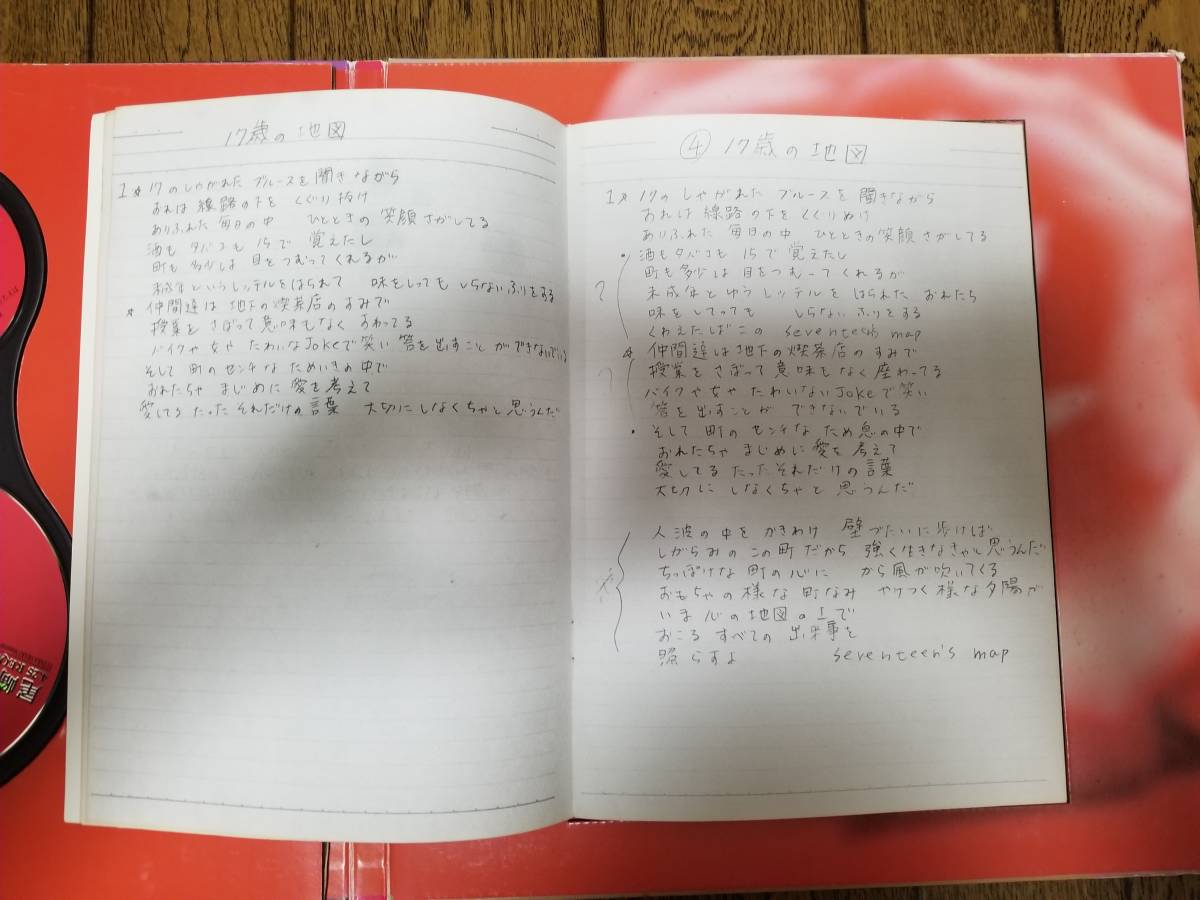 17歳の地図
1☆ 17のしゃがれた ブルースを聞きながら
おれは 線路の下を くぐり抜け
ありふれた毎日の中 ひとときの 笑顔さがしてる
酒もタバコも 15で 覚えたし
町も 多少は 目をつむってくれるが
未成年というレッテルをはられて 味をしっても しらないふりをする
☆ 仲間達は 地下の喫茶店のすみで
授業を さぼって意味もなく すわってる
バイクや女や たわいなJokeで笑い 答を出すことができないでいる
そして 町の センチな ためいきの中で
おれたちゃ まじめに 愛を考えて
愛してる たった それだけの言葉 大切にしなくちゃと思うんだ
④ 17歳の地図
1☆ 17の しゃがれた ブルースを 聞きながら
おれは 線路の下を くぐりぬけ
ありふれた 毎日の中 ひとときの笑顔さがしてる
・酒もタバコも 15で 覚えたし
町も多少は 目をつむってくれるが
? 未成年とゆうレッテルを はられた おれたち
味をしっても しらないふりをする
くわえたばこの seventeen's map
☆ 仲間達は地下の喫茶店のすみで
? 授業を さぼって 意味もなく 座わってる
バイクや女や たわいないJokeで笑い
答を出すことが できないでいる
・そして 町の センチな ため息の中で
おれたちゃ まじめに 愛を考えて
愛してる たったそれだけの言葉
大切に しなくちゃと 思うんだ
人波の中を かきわけ 壁づたいに歩けば
しがらみの この町だから 強く生きなきゃと思うんだ
ちっぽけな町の心に から風が吹いてくる
おもちゃの様な町なみ やけつく様な夕陽が
いま心の地図の上で
おこる すべての 出来事を
照らすよ seventeen's map